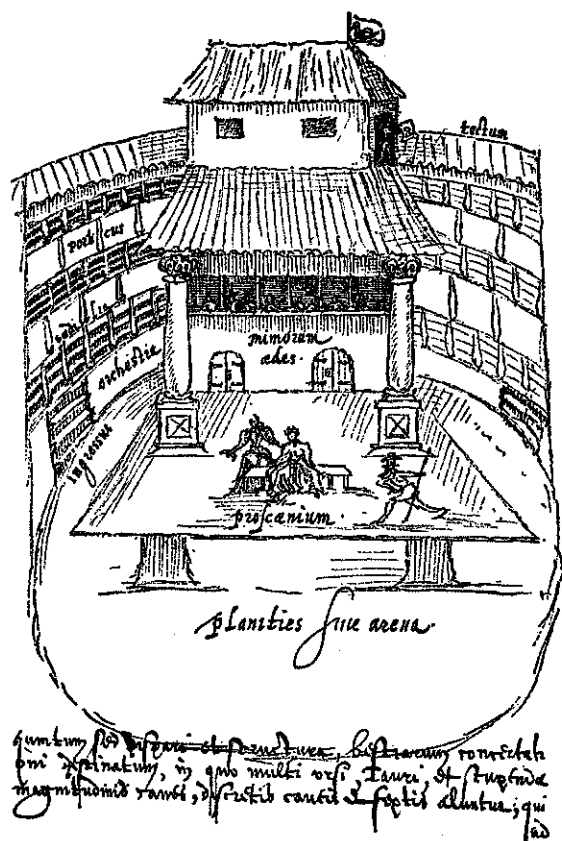 tectum
porticus
sedilia
mimorum
ædes.
orchestra
ingressus
proscænium.
planities sive arena.
quintum sed dispari et structura, bestiarum concertati
oni destinatum, in quo multi ursi, Tauri, et stupendæ
magnitudinis canes, discretis caveis et septis aluntur, qui
ad